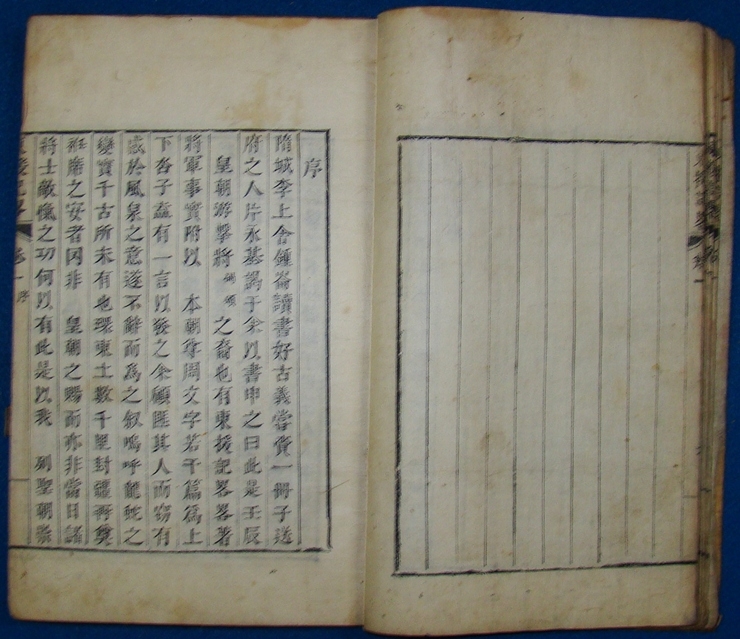 序
隋城李上舍鍾崙讀書好古義嘗賷一冊子送
府之人片永基謁于余以書申之曰此是壬辰
皇朝游擊將碣頌之裔也有東援記畧畧著
將軍事實附以 本朝尊周文字若干篇爲上
下呇子盍有一言以發之余顧匪其人而竊有
感於風泉之意遂不辭而爲之叙嗚呼龍蛇之
變實千古所未有也環東土數千里封疆再奠
之安者罔非 皇朝之賜而亦非當日諸
將士敵愾之功何以有此是以我 列聖朝崇
卷一 序